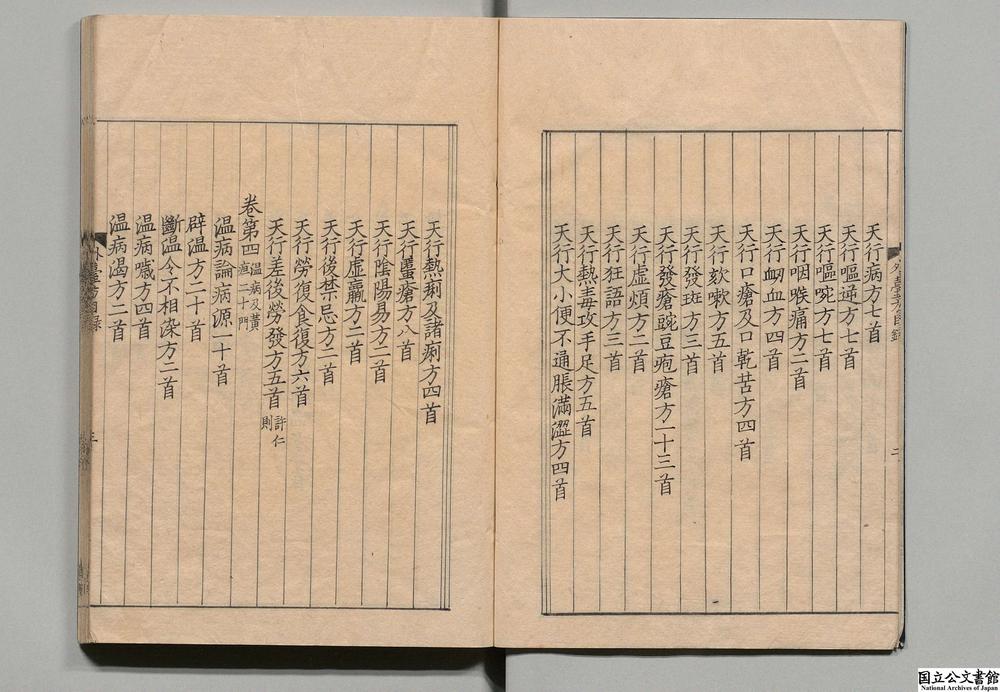 天行病方七首
天行嘔逆方七首
天行嘔啘方七首
天行咽喉痛方二首
天行衂血方四首
天行口瘡及口乾苦方四首
天行欬嗽方五首
天行發斑方三首
天行發瘡豌豆疱瘡方一十三首
天行虛煩方二首
天行狂語方三首
天行熱毒攻手足方五首
天行大小便不通脹滿澀方四首
天行熱痢及諸痢方四首
天行䘌瘡方八首
天行陰陽易方二首
天行虛羸方二首
天行後禁忌方二首
天行勞復食復方六首
天行差後勞發方五首 許仁則
卷第四 温病及黃疸二十門
温病論病源二十首
辟温方二十首
斷温令不相染方二首
温病噦方四首
温病渴方二首
外臺方目錄
二
三
国立公文書館
National Archives of Japan